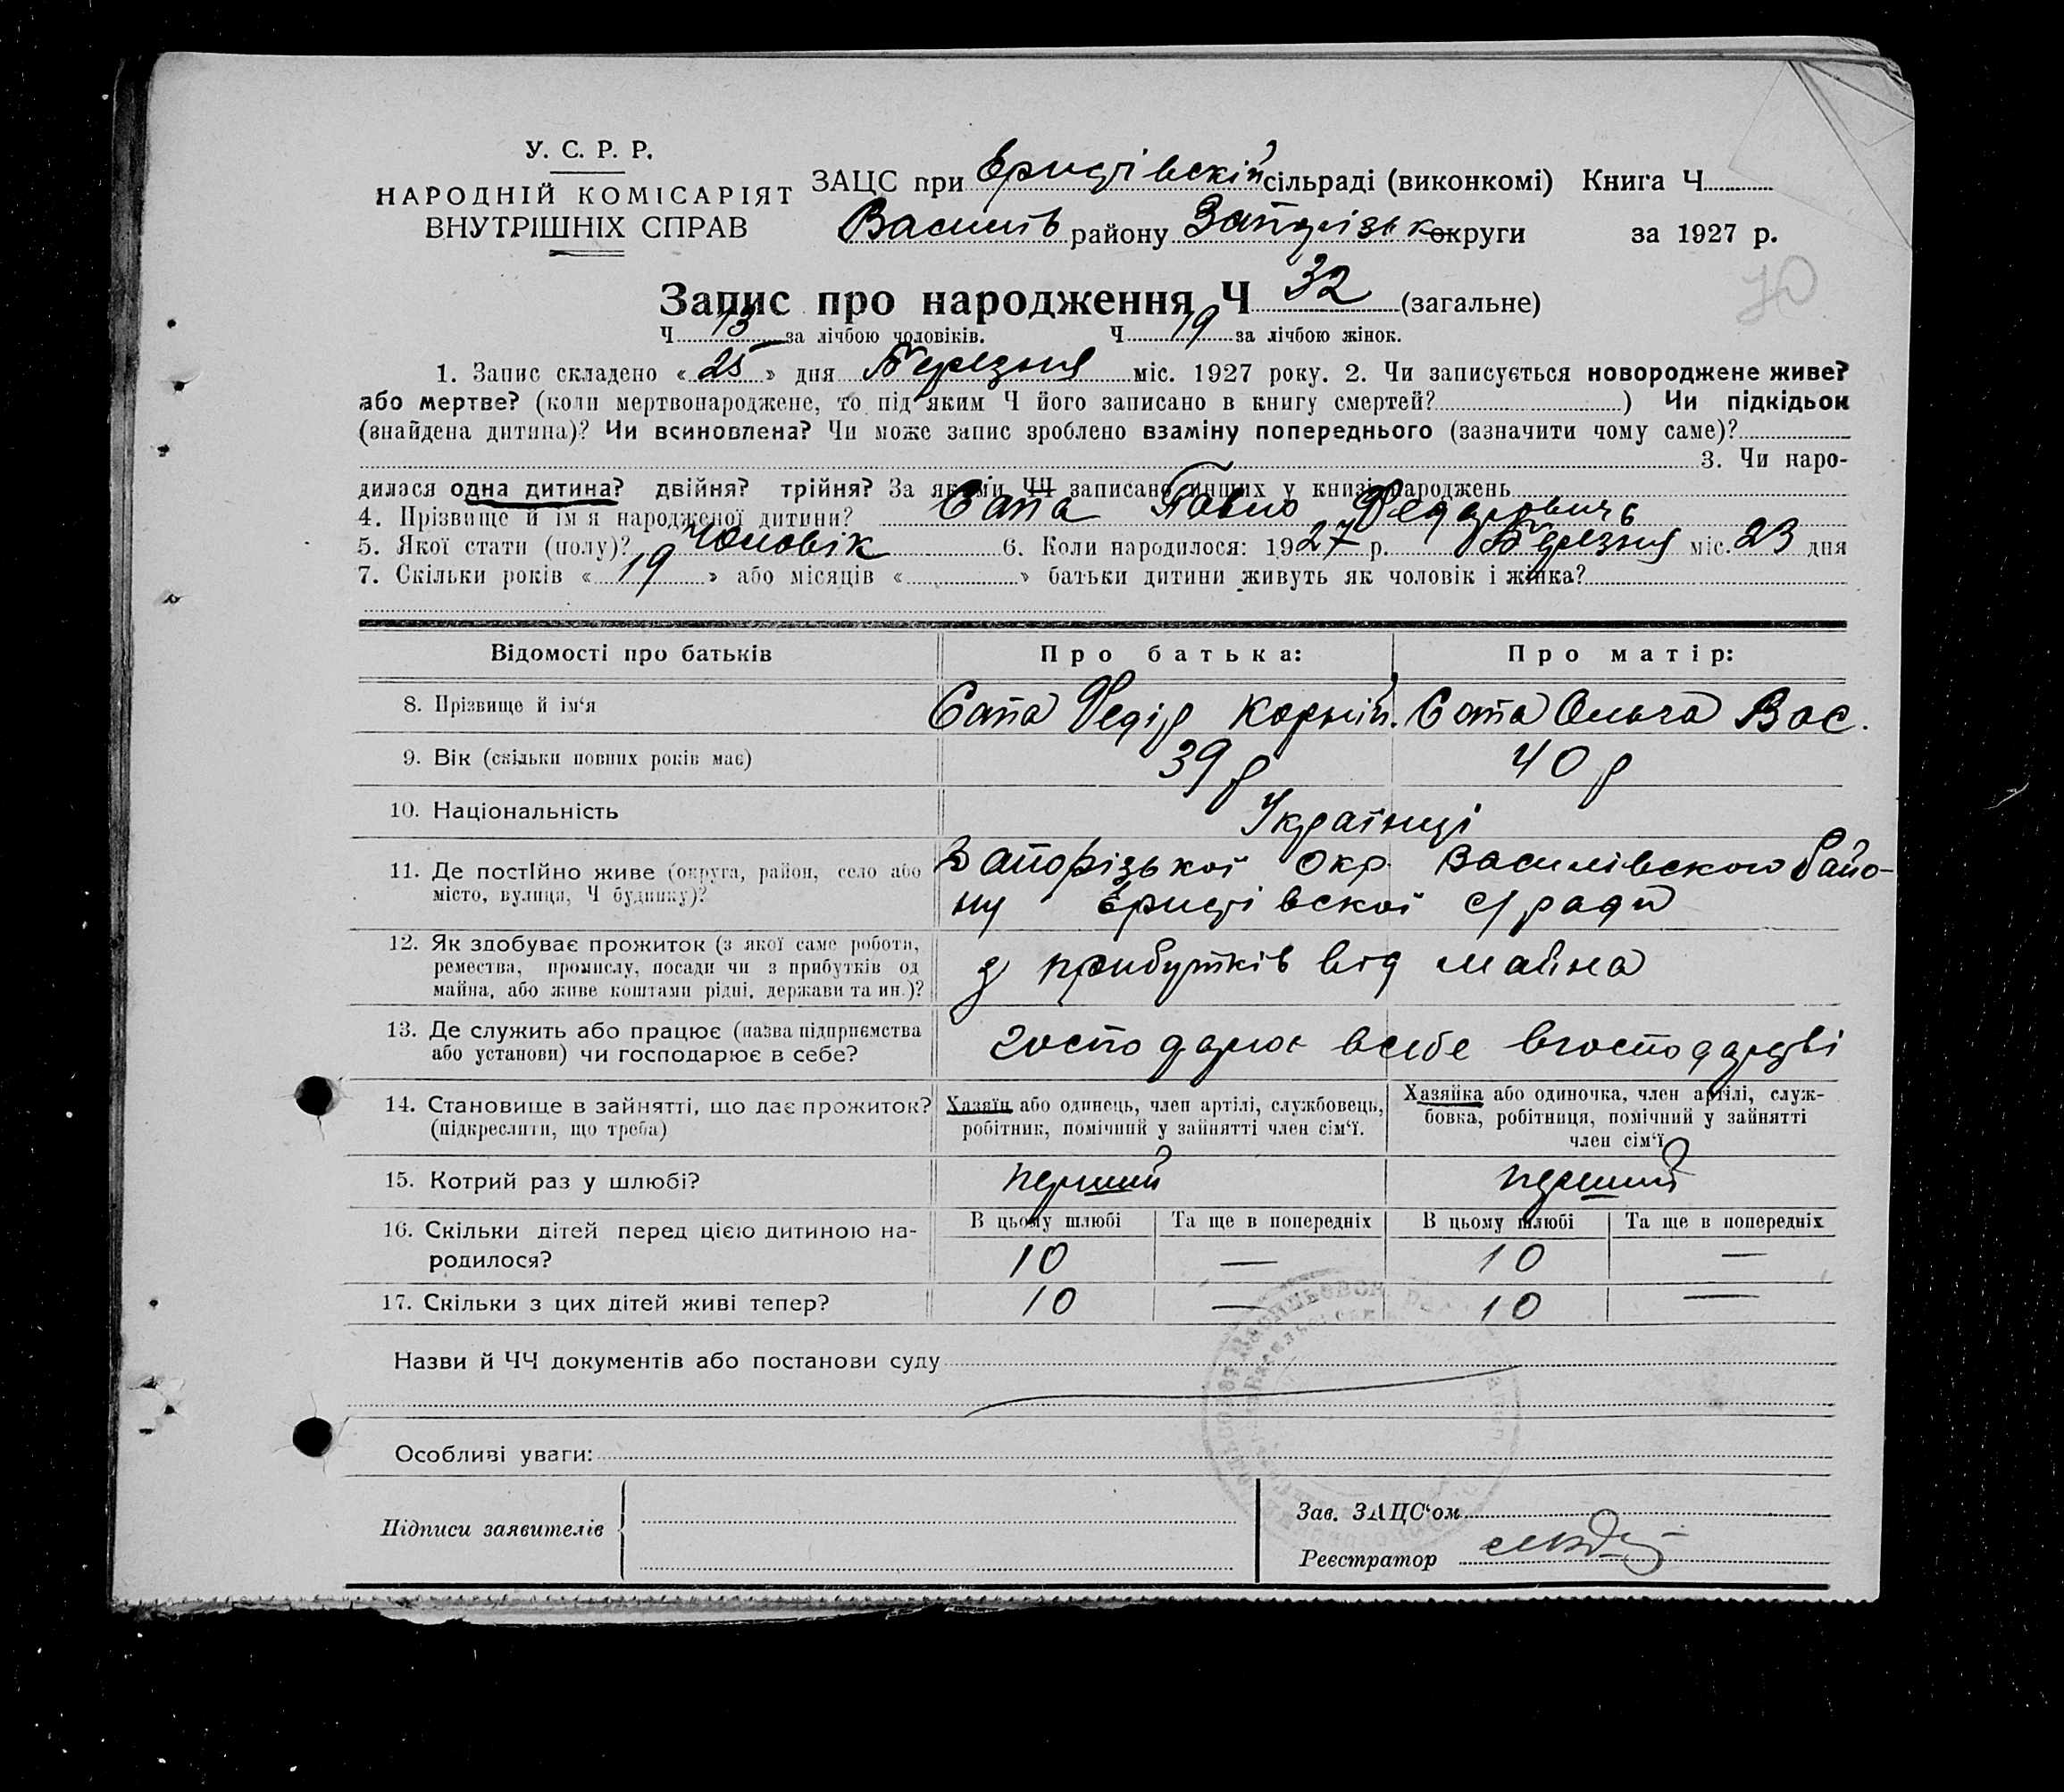 У. С. Р. Р.
НАРОДНІЙ КОМІСАРІЯТ
ВНУТРІШНІХ СПРАВ
ЗАЦС при Еристівскій сільраді (виконкомі) Книга Ч
Василів району Запоріськ округи за 1927 р.
70
Запис про народження Ч 32 (загальне)
Ч 13 за лічбою чоловіків. Ч 19 за лічбою жінок.
1. Запис складено « 25 » дня Березня міс. 1927 року. 2. Чи записується новороджене живе?
або мертве? (коли мертвонароджене, то під яким Ч його записано в книгу смертей? ) Чи підкідьок
(знайдена дитина)? Чи всиновлена? Чи може запис зроблено взаміну попереднього (зазначити чому саме)?
3. Чи наро-
дилася одна дитина? двійня? трійня? За якими ЧЧ записано инших у книзі народжень
4. Прізвище й ім'я народженої дитини? Сапа Павло Федорович
5. Якої стати (полу)? Чоловік 6. Коли народилося: 1927 р. Березня міс. 23 дня
7. Скільки років « 19 » або місяців « » батьки дитини живуть як чоловік і жінка?
Відомості про батьків Про батька: Про матір:
8. Прізвище й ім'я Сапа Федір Корній. Сапа Ольга Вас.
9. Вік (скільки повних років має) 39 р 40 р
10. Національність Українці
11. Де постійно живе (округа, район, село або Запорізької Окр. Василівского Райо-
місто, вулиця, Ч будинку)? ну Еристівскої с/ради
12. Як здобуває прожиток (з якої саме роботи,
ремества, промислу, посади чи з прибутків од з прибутків від майна
майна, або живе коштами рідні, держави та ин.)?
13. Де служить або працює (назва підприємства господарює всебе вгосподарстві
або установи) чи господарює в себе?
14. Становище в зайнятті, що дає прожиток? Хазяїн або одинець, член артілі, службовець, Хазяйка або одиночка, член артілі, служ-
(підкреслити, що треба) робітник, помічний у зайнятті член сім'ї. бовка, робітниця, помічний у зайнятті
член сім'ї
15. Котрий раз у шлюбі? перший перший
16. Скільки дітей перед цією дитиною на- В цьому шлюбі Та ще в попередніх В цьому шлюбі Та ще в попередніх
родилося? 10 — 10 —
17. Скільки з цих дітей живі тепер? 10 — 10 —
Назви й ЧЧ документів або постанови суду
Особливі уваги:
Підписи заявителів
Зав. ЗАЦС'ом
Реєстратор